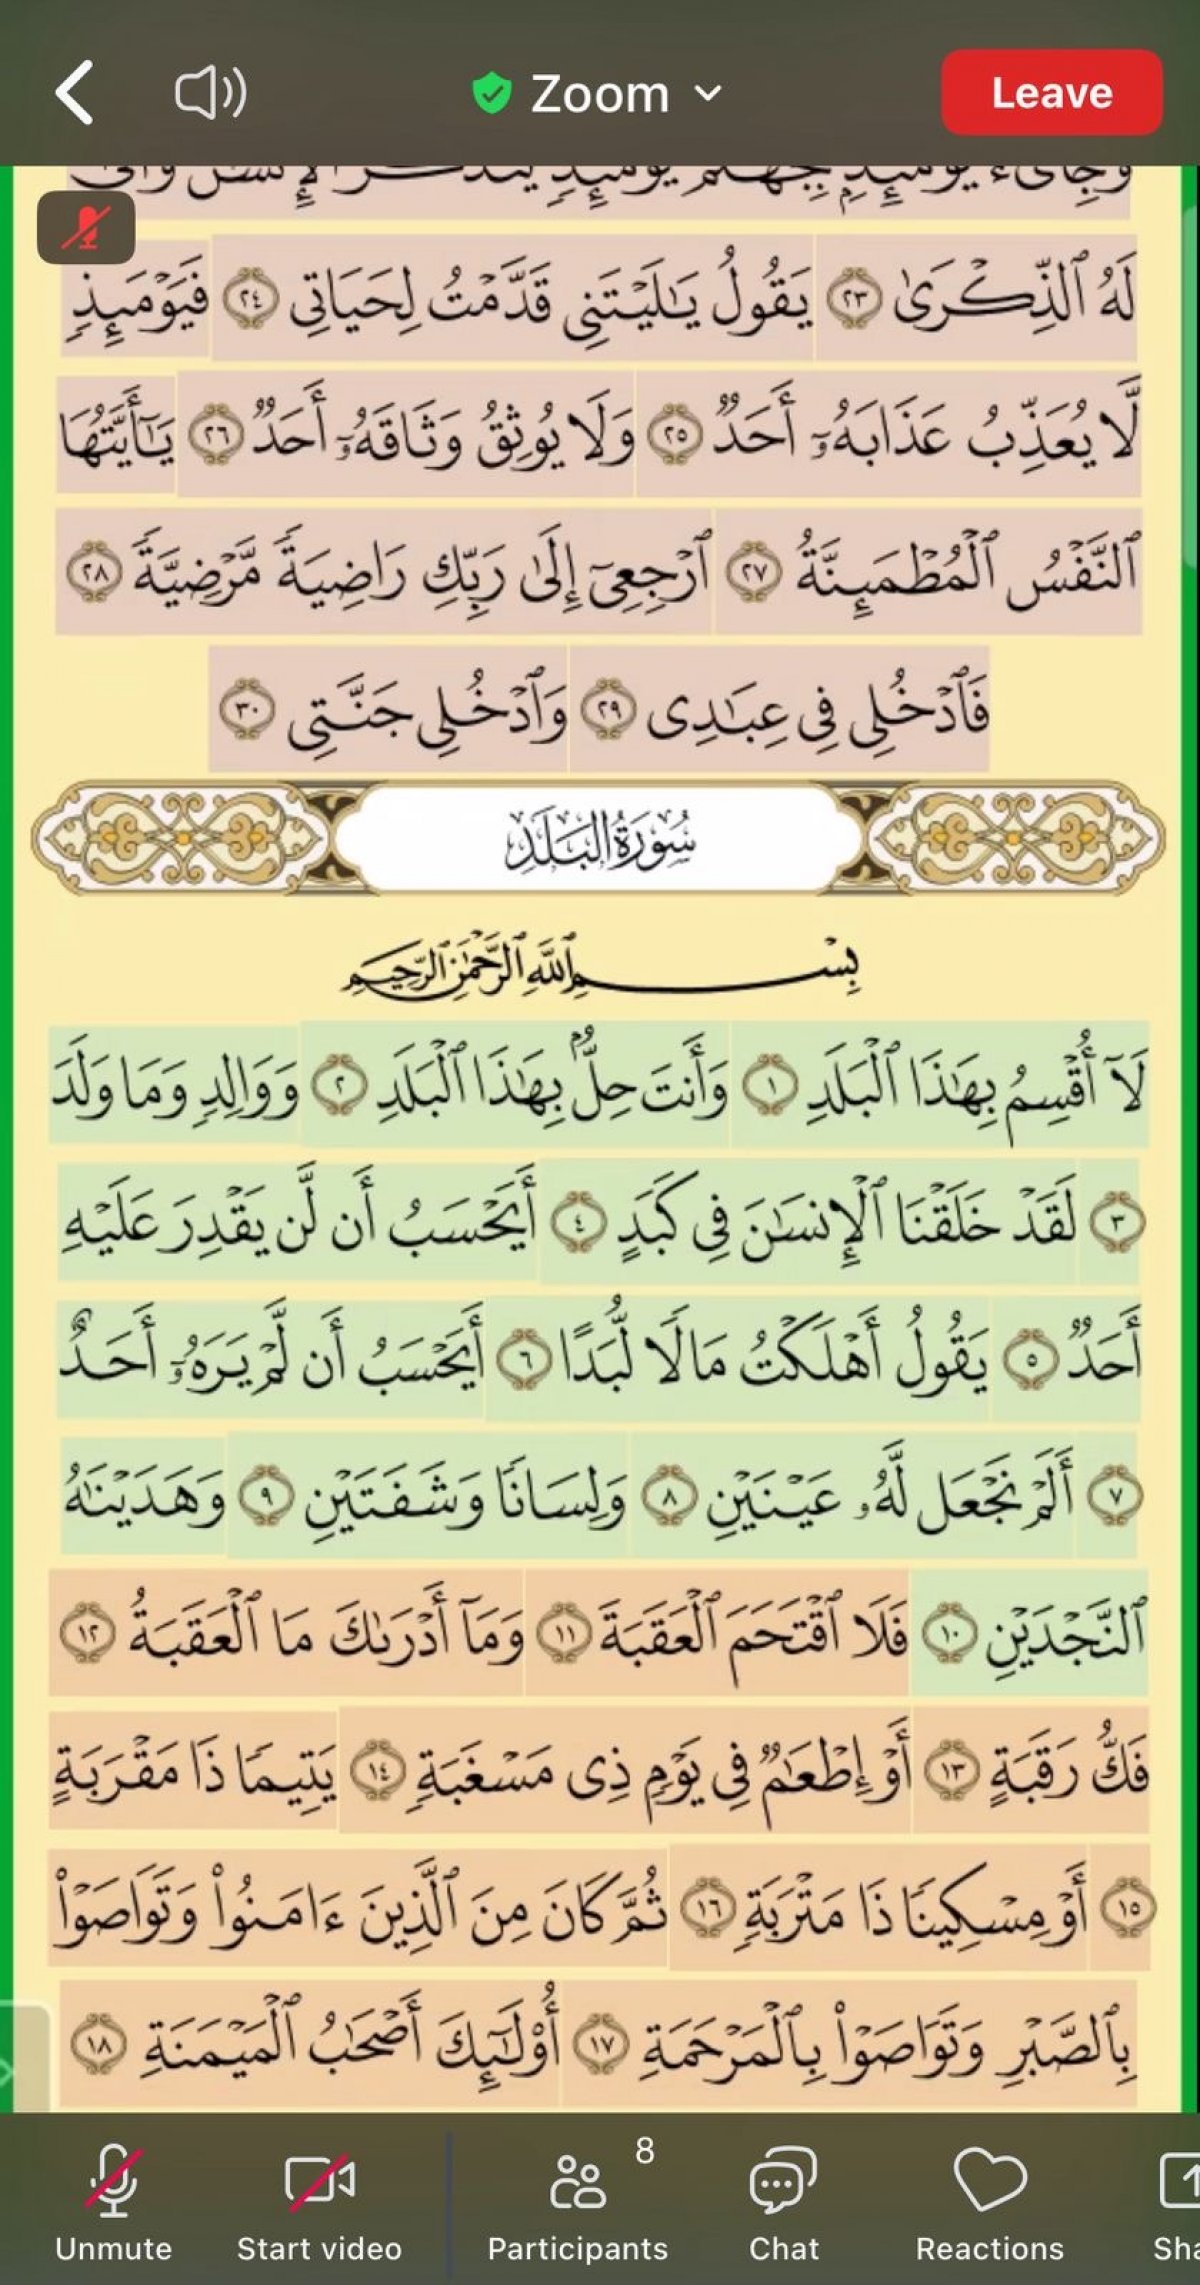 Zoom
Leave
وَجِا۟ىٓءَ يَوْمَئِذٍۭ بِجَهَنَّمَ يَوْمَئِذٍ يَتَذَكَّرُ ٱلْإِنسَٰنُ وَأَنَّىٰ
لَهُ ٱلذِّكْرَىٰ ٢٣ يَقُولُ يَٰلَيْتَنِى قَدَّمْتُ لِحَيَاتِى ٢٤ فَيَوْمَئِذٍ
لَّا يُعَذِّبُ عَذَابَهُۥٓ أَحَدٌ ٢٥ وَلَا يُوثِقُ وَثَاقَهُۥٓ أَحَدٌ ٢٦ يَٰٓأَيَّتُهَا
ٱلنَّفْسُ ٱلْمُطْمَئِنَّةُ ٢٧ ٱرْجِعِىٓ إِلَىٰ رَبِّكِ رَاضِيَةً مَّرْضِيَّةً ٢٨
فَٱدْخُلِى فِى عِبَٰدِى ٢٩ وَٱدْخُلِى جَنَّتِى ٣٠
سُورَةُ البَلَدِ
بِسْمِ ٱللَّهِ ٱلرَّحْمَٰنِ ٱلرَّحِيمِ
لَآ أُقْسِمُ بِهَٰذَا ٱلْبَلَدِ ١ وَأَنتَ حِلٌّۢ بِهَٰذَا ٱلْبَلَدِ ٢ وَوَالِدٍ وَمَا وَلَدَ
٣ لَقَدْ خَلَقْنَا ٱلْإِنسَٰنَ فِى كَبَدٍ ٤ أَيَحْسَبُ أَن لَّن يَقْدِرَ عَلَيْهِ
أَحَدٌ ٥ يَقُولُ أَهْلَكْتُ مَالًا لُّبَدًا ٦ أَيَحْسَبُ أَن لَّمْ يَرَهُۥٓ أَحَدٌ
٧ أَلَمْ نَجْعَل لَّهُۥ عَيْنَيْنِ ٨ وَلِسَانًا وَشَفَتَيْنِ ٩ وَهَدَيْنَٰهُ
ٱلنَّجْدَيْنِ ١٠ فَلَا ٱقْتَحَمَ ٱلْعَقَبَةَ ١١ وَمَآ أَدْرَىٰكَ مَا ٱلْعَقَبَةُ ١٢
فَكُّ رَقَبَةٍ ١٣ أَوْ إِطْعَٰمٌ فِى يَوْمٍ ذِى مَسْغَبَةٍ ١٤ يَتِيمًا ذَا مَقْرَبَةٍ
١٥ أَوْ مِسْكِينًا ذَا مَتْرَبَةٍ ١٦ ثُمَّ كَانَ مِنَ ٱلَّذِينَ ءَامَنُوا۟ وَتَوَاصَوْا۟
بِٱلصَّبْرِ وَتَوَاصَوْا۟ بِٱلْمَرْحَمَةِ ١٧ أُو۟لَٰٓئِكَ أَصْحَٰبُ ٱلْمَيْمَنَةِ ١٨
8
Unmute
Start video
Participants
Chat
Reactions